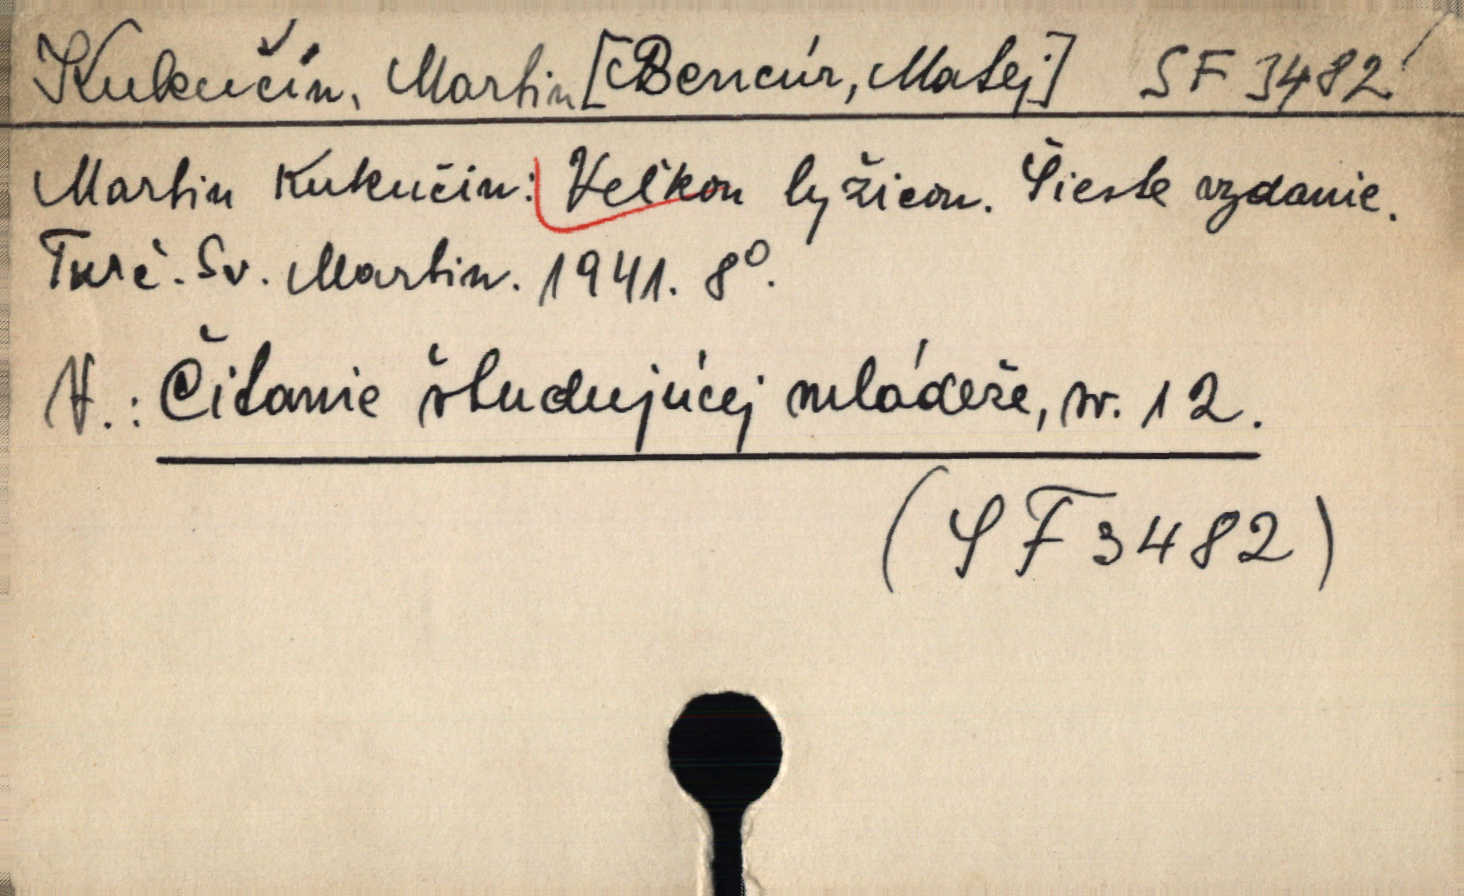 Kukučín, Martin [Bencúr, Matej] SF 3482
Martin Kukučín: Veľkou lyžicou. Šieste vydanie.
Turč. Sv. Martin. 1941. 8°.
V.: Čítanie študujúcej mládeže, sv. 12.
(SF 3482)